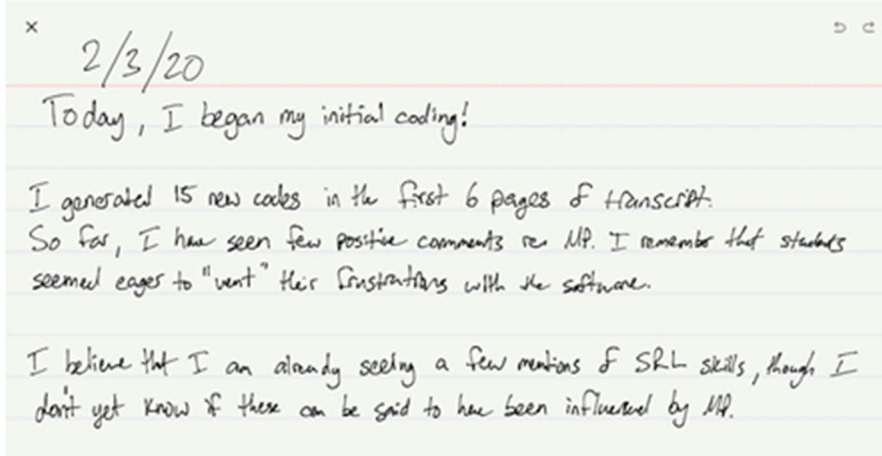 2/3/20
Today, I began my initial coding!
I generated 15 new codes in the first 6 pages of transcript.
So far, I have seen few positive comments re: MP. I remember that students
seemed eager to "vent" their frustrations with the software.
I believe that I am already seeing a few mentions of SRL skills, though I
don't yet know if these can be said to have been influenced by MP.